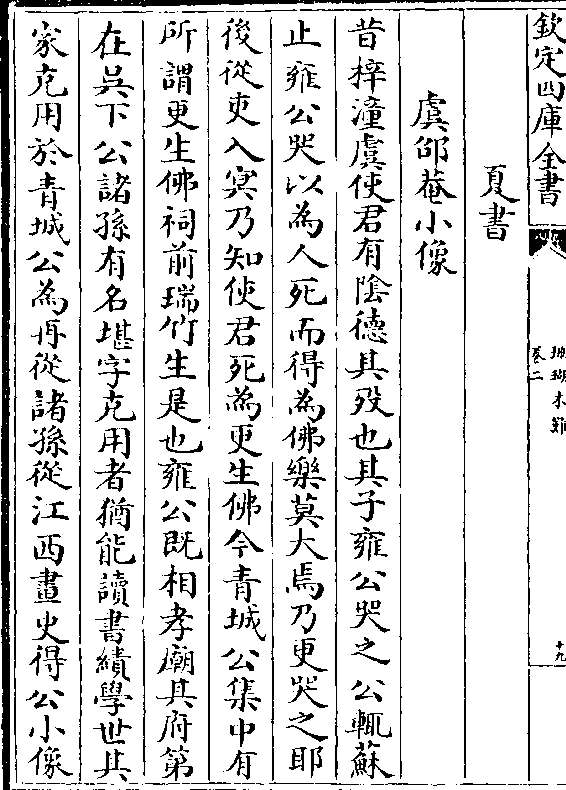 欽定四庫全書
珊瑚木難
卷二
十九
夏書
虞邵菴小像
昔梓潼虞使君有陰德其歿也其子雍公哭之公輒蘇
止雍公哭以為人死而得為佛樂莫大焉乃更哭之耶
後從吏入冥乃知使君死為更生佛今青城公集中有
所謂更生佛祠前瑞竹生是也雍公既相孝廟其府第
在吳下公諸孫有名堪字克用者猶能讀書績學世其
家克用於青城公為再從諸孫從江西畫史得公小像